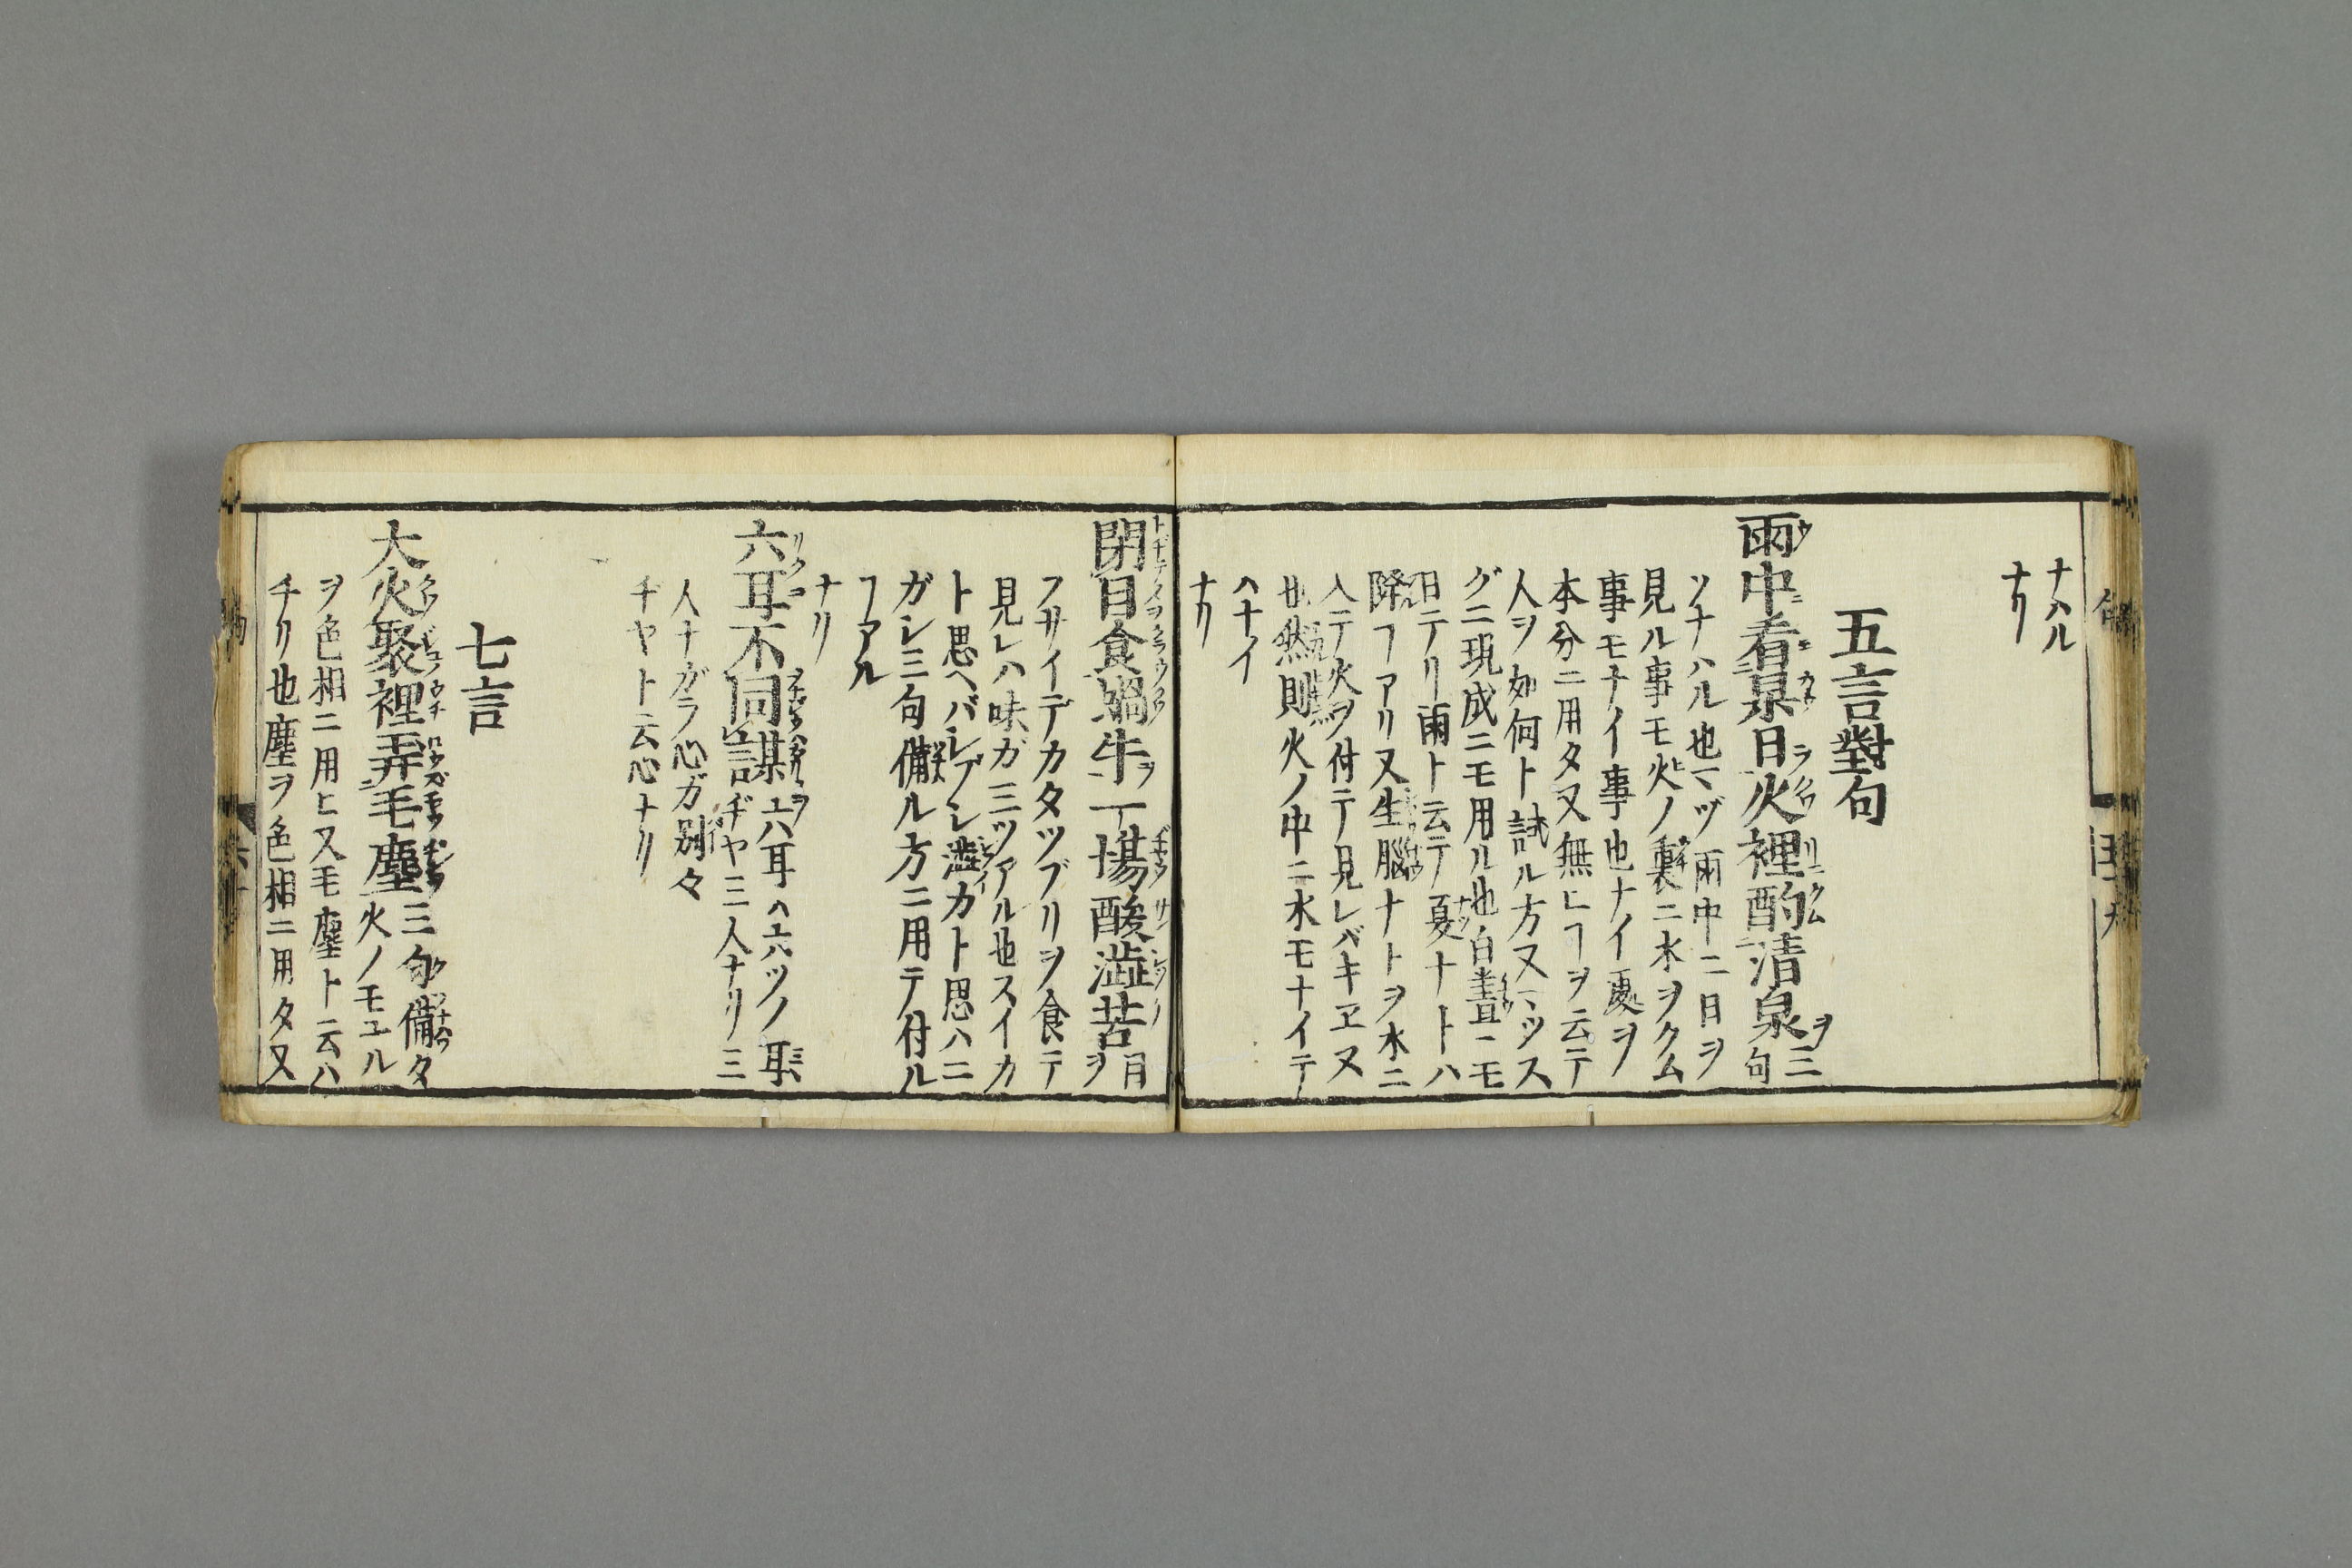 ナハル
ナリ
五言對句
雨中看杲日火裡酌清泉ヲ三句
ソナハル也マヅ雨中ニ日ヲ
見ル事モ火ノ裏ニ水ヲクム
事モナイ事也ナイ處ヲ
本分ニ用タ又無ヒヿヲ云テ
人ヲ如何ト試ル方又マツス
グニ現成ニモ用ル也白晝ニモ
日テリ雨ト云テ夏ナトハ
降ヿアリ又生腦ナトヲ水ニ
入テ火ヲ付テ見レバキヱヌ
然則火ノ中ニ水モナイテ
ハナイ
ナリ
閉目食蝸牛一場酸澁苦目ヲ
フサイデカタツブリヲ食テ
見レハ味ガ三ツアル也スイカ
ト思ヘバシブシ澁カト思ハニ
ガシ三句備ル方ニ用テ付ル
ヿアル
ナリ
六耳不同謀六耳ハ六ツノ耳
ヂヤ三人ナリ三
人ナガラ心ガ別々
ヂヤト云心ナリ
七言
大火聚裡弄毛塵三句備タ
火ノモユル
ヲ色相ニ用ヒ又毛塵ト云ハ
チリ也塵ヲ色相ニ用タ又